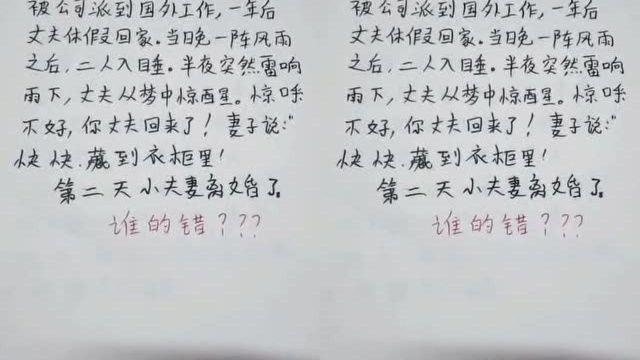 被公司派到国外工作,一年后
丈夫休假回家.当日晚一阵风雨
之后,二人入睡.半夜突然雷响
雨下,丈夫从梦中惊醒。惊呼
不好,你丈夫回来了!妻子说:"
快快.藏到衣柜里!
第二天小夫妻离婚了.
谁的错???
被公司派到国外工作,一年后
丈夫休假回家.当日晚一阵风雨
之后,二人入睡.半夜突然雷响
雨下,丈夫从梦中惊醒。惊呼
不好,你丈夫回来了!妻子说:"
快快.藏到衣柜里!
第二天小夫妻离婚了.
谁的错???